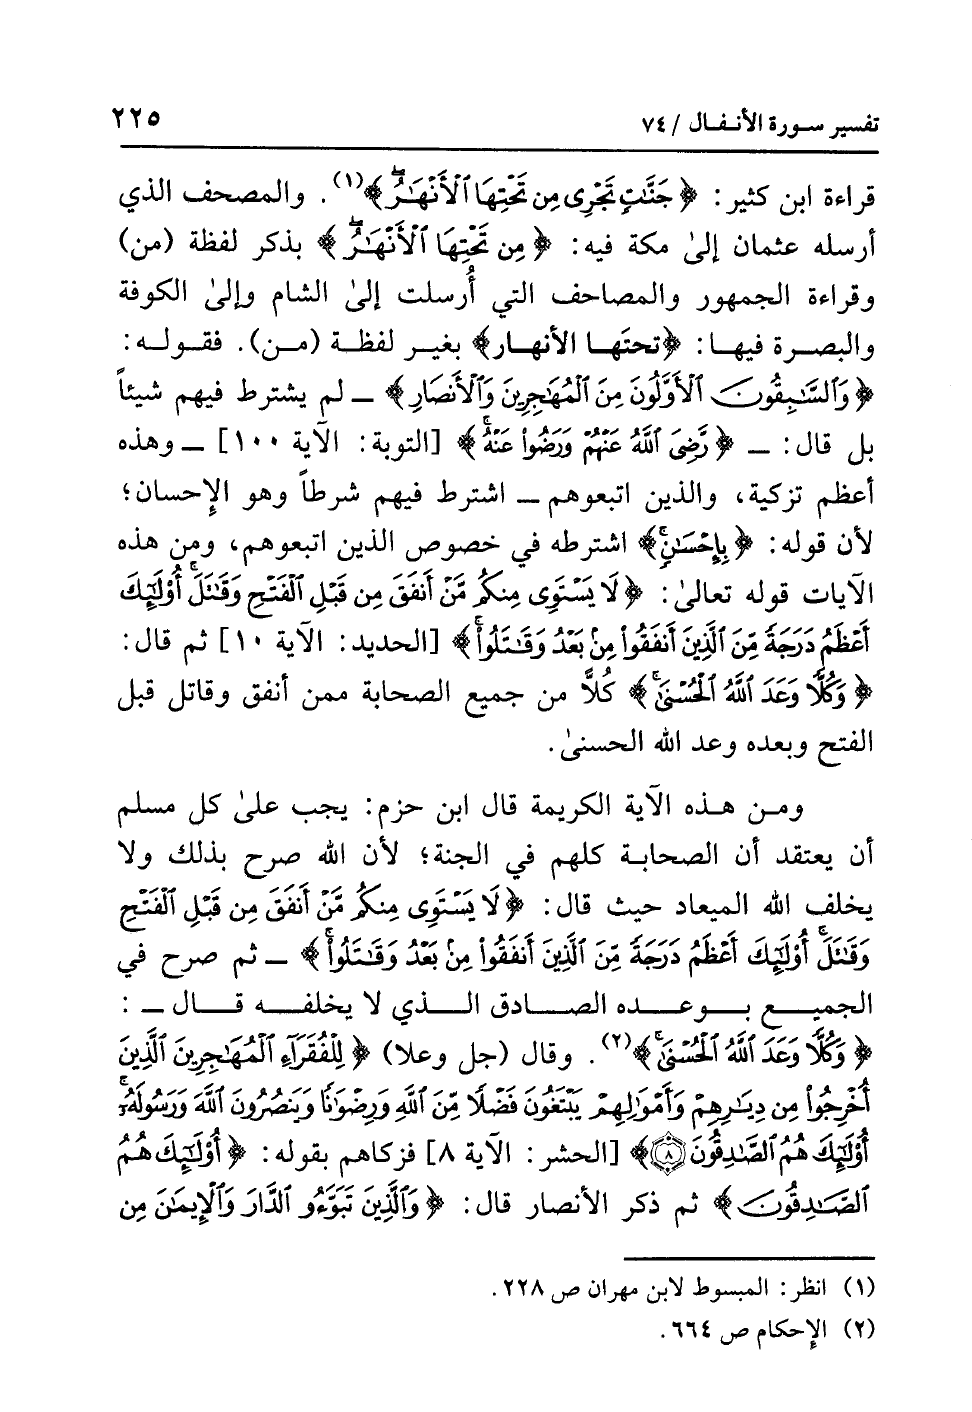 تفسير سورة الأنفال / ٧٤
٢٢٥
قراءة ابن كثير: ﴿جَنَّٰتٖ تَجۡرِي مِن تَحۡتِهَا ٱلۡأَنۡهَٰرُۖ﴾(١). والمصحف الذي
أرسله عثمان إلىٰ مكة فيه: ﴿مِن تَحۡتِهَا ٱلۡأَنۡهَٰرُۖ﴾ بذكر لفظة (من)
وقراءة الجمهور والمصاحف التي أُرسلت إلىٰ الشام وإلىٰ الكوفة
والبصرة فيها: ﴿تحتَها الأنهار﴾ بغير لفظة (من). فقوله:
﴿وَٱلسَّٰبِقُونَ ٱلۡأَوَّلُونَ مِنَ ٱلۡمُهَٰجِرِينَ وَٱلۡأَنصَارِ﴾ ـ لم يشترط فيهم شيئاً
بل قال: ـ ﴿رَّضِيَ ٱللَّهُ عَنۡهُمۡ وَرَضُواْ عَنۡهُۚ﴾ [التوبة: الآية ١٠٠] ـ وهذه
أعظم تزكية، والذين اتبعوهم ـ اشترط فيهم شرطاً وهو الإحسان؛
لأن قوله: ﴿بِإِحۡسَٰنٖۚ﴾ اشترطه في خصوص الذين اتبعوهم، ومن هذه
الآيات قوله تعالىٰ: ﴿لَا يَسۡتَوِي مِنكُم مَّنۡ أَنفَقَ مِن قَبۡلِ ٱلۡفَتۡحِ وَقَٰتَلَۚ أُوْلَٰٓئِكَ
أَعۡظَمُ دَرَجَةٗ مِّنَ ٱلَّذِينَ أَنفَقُواْ مِنۢ بَعۡدُ وَقَٰتَلُواْۚ﴾ [الحديد: الآية ١٠] ثم قال:
﴿وَكُلّٗا وَعَدَ ٱللَّهُ ٱلۡحُسۡنَىٰۚ﴾ كُلًّا من جميع الصحابة ممن أنفق وقاتل قبل
الفتح وبعده وعد الله الحسنىٰ.
ومن هذه الآية الكريمة قال ابن حزم: يجب علىٰ كل مسلم
أن يعتقد أن الصحابة كلهم في الجنة؛ لأن الله صرح بذلك ولا
يخلف الله الميعاد حيث قال: ﴿لَا يَسۡتَوِي مِنكُم مَّنۡ أَنفَقَ مِن قَبۡلِ ٱلۡفَتۡحِ
وَقَٰتَلَۚ أُوْلَٰٓئِكَ أَعۡظَمُ دَرَجَةٗ مِّنَ ٱلَّذِينَ أَنفَقُواْ مِنۢ بَعۡدُ وَقَٰتَلُواْۚ﴾ ـ ثم صرح في
الجميع بوعده الصادق الذي لا يخلفه قال ـ :
﴿وَكُلّٗا وَعَدَ ٱللَّهُ ٱلۡحُسۡنَىٰۚ﴾(٢). وقال (جل وعلا) ﴿لِلۡفُقَرَآءِ ٱلۡمُهَٰجِرِينَ ٱلَّذِينَ
أُخۡرِجُواْ مِن دِيَٰرِهِمۡ وَأَمۡوَٰلِهِمۡ يَبۡتَغُونَ فَضۡلٗا مِّنَ ٱللَّهِ وَرِضۡوَٰنٗا وَيَنصُرُونَ ٱللَّهَ وَرَسُولَهُۥٓۚ
أُوْلَٰٓئِكَ هُمُ ٱلصَّٰدِقُونَ ٨﴾ [الحشر: الآية ٨] فزكاهم بقوله: ﴿أُوْلَٰٓئِكَ هُمُ
ٱلصَّٰدِقُونَ﴾ ثم ذكر الأنصار قال: ﴿وَٱلَّذِينَ تَبَوَّءُو ٱلدَّارَ وَٱلۡإِيمَٰنَ مِن
(١) انظر: المبسوط لابن مهران ص ٢٢٨.
(٢) الإحكام ص ٦٦٤.